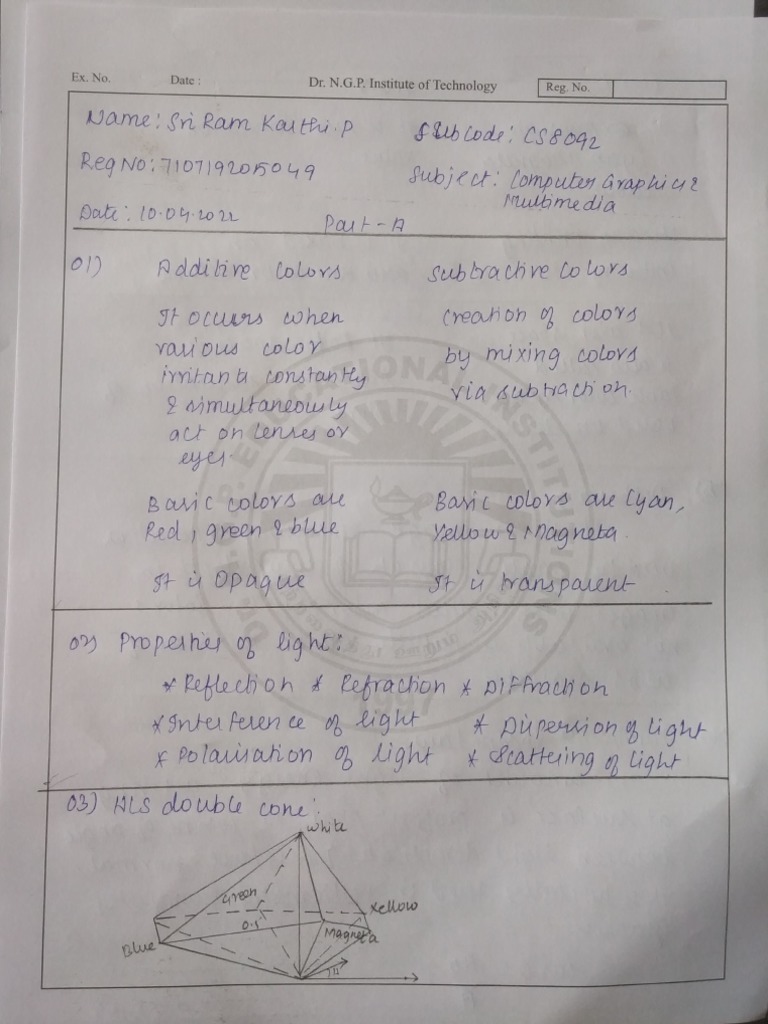 Ex. No. Date : Dr. N.G.P. Institute of Technology Reg. No.
Name: Sri Ram Karthi.P SubCode: CS8092
Reg No: 710719205049 Subject: Computer Graphics &
Multimedia
Date: 10.04.2022 Part-A
01) Additive colors Subtractive colors
It occurs when creation of colors
various color by mixing colors
irritants constantly via subtraction.
& simultaneously
act on lenses or
eyes.
Basic colors are Basic colors are Cyan,
Red, green & blue Yellow & Magneta.
It is Opaque It is transparent.
02) Properties of light:
* Reflection * Refraction * Diffraction
* Interference of light * Dispersion of light
* Polarisation of light * Scattering of light
03) HLS double cone:
White
Green Yellow
0.5 Magneta
Blue
H